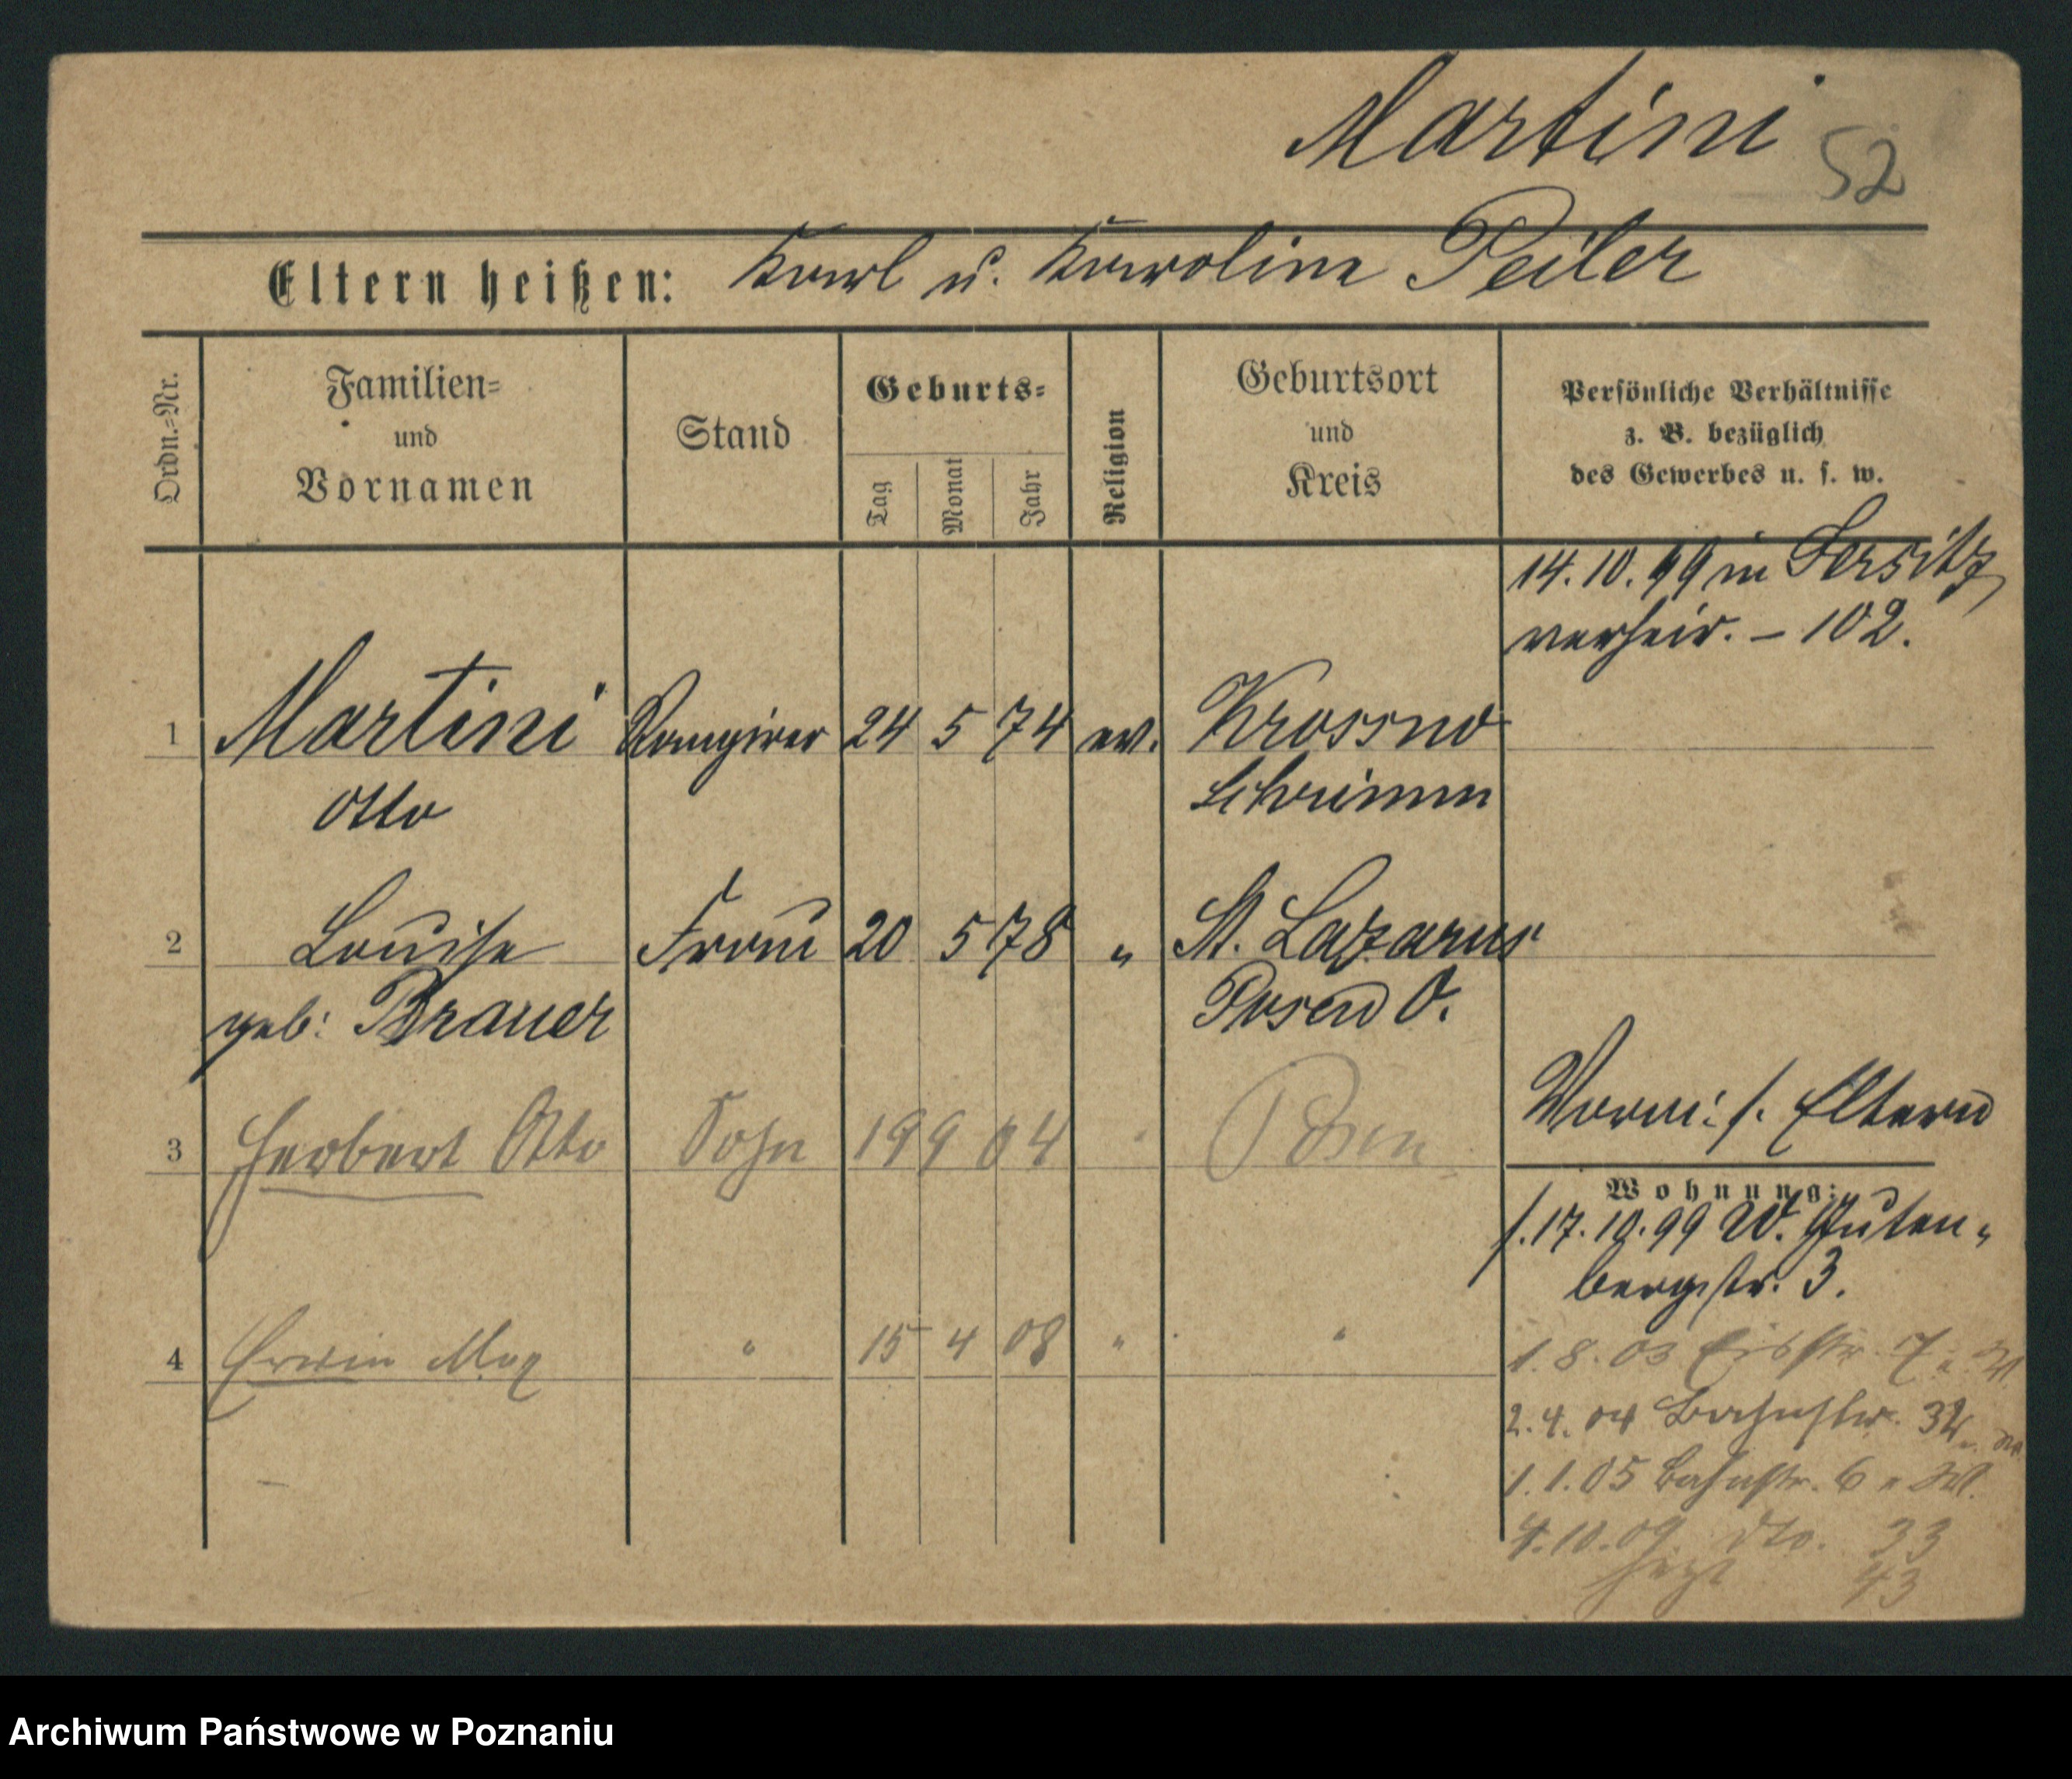 Martini
52
Eltern heißen: Karl u. Karoline Peiler
Ordn.=Nr.
Familien=
und
Vornamen
Stand
Geburts=
Tag
Monat
Jahr
Religion
Geburtsort
und
Kreis
Persönliche Verhältnisse
z. B. bezüglich
des Gewerbes u. s. w.
14.10.99 in Jersitz
verheir. – 102.
1 Martini Rangirer 24 5 74 ev. Krossno
Otto Schrimm
2 Louise Frau 20 5 78 „ St. Lazarus
geb: Brauer Posen O.
Vorm: s. Eltern
3 Herbert Otto Sohn 19 9 04 " Posen
Wohnung:
s. 17.10.99 W. Guten„
bergstr. 3.
4 Erwin Max " 15 4 08 " "
1.8.03 7
2.4.04 Bahnstr. 32
1.1.05 Bahnstr. 6 " W.
4.10.09. dto. 33
jetzt 43
Archiwum Państwowe w Poznaniu